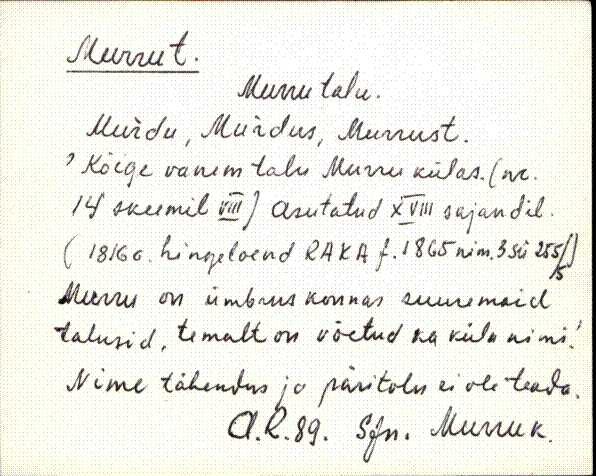 Murrut.
Murru talu.
Murdu, Murdus, Murrust.
' Kõige vanem talu Murru külas. (nr.
14 skeemil VIII) Asutatud XVIII sajandil.
(1816 a. hingeloend RAKA f. 1865 nim. 3 sü 255/5)
Murru on ümbruskonnas suuremaid
talusid, temalt on võetud ka küla nimi.'
Nime tähendus ja päritolu ei ole teada.
A.R. 89. Sjn. Murruk.